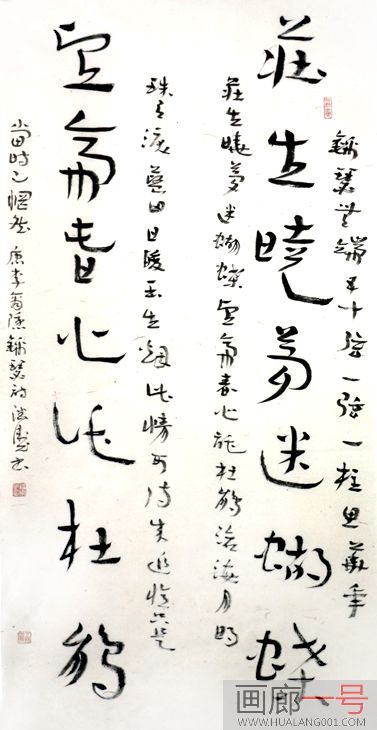 錦瑟無端五十弦一弦一柱思華年
莊生曉夢迷蝴蝶
莊生曉夢迷蝴蝶望帝春心託杜鵑滄海月明
珠有淚藍田日暖玉生煙此情可待成追憶只是
望帝春心託杜鵑
當時已惘然 唐李商隱錦瑟詩
画廊一号
WWW.HUALANG001.COM